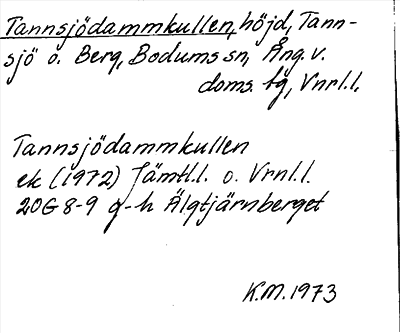 Tannsjödammkullen, höjd, Tann-
sjö o. Berg, Bodums sn, Ång. v.
doms. tg, Vnrl.l.
Tannsjödammkullen
ek (1972) Jämtl.l. o. Vrnl.l.
20G 8-9 g-h Älgtjärnberget
K.M. 1973